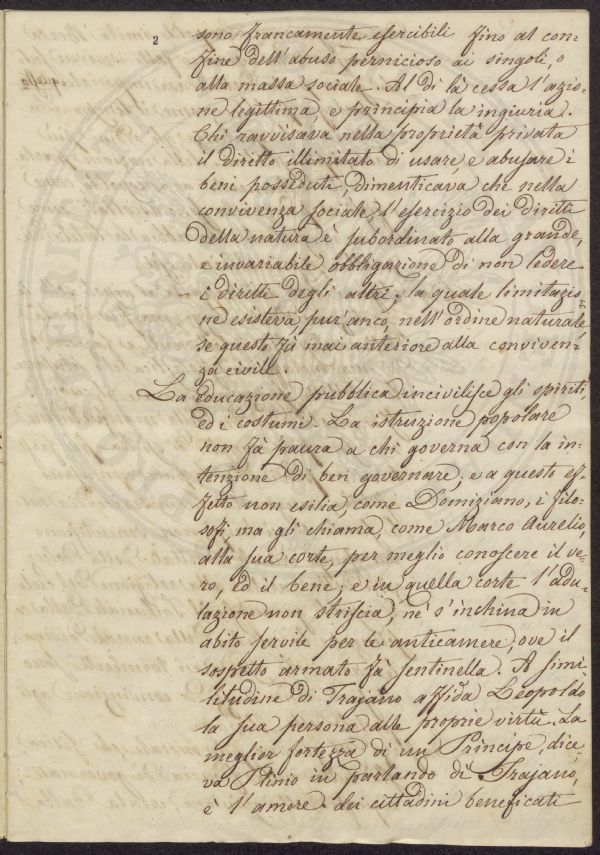 2
sono francamente esercibili fino al con=
fine dell'abuso pernicioso ai singoli, o
alla massa sociale. Al di là cessa l'azio=
ne legittima, e principia la ingiuria.
Chi ravvisava nella proprietà privata
il diritto illimitato di usare, e abusare i
beni posseduti, dimenticava che nella
convivenza sociale, l'esercizio dei diritti
della natura è subordinato alla grande,
e invariabile obbligazione di non ledere
i diritti degli altri; la quale limitazio=
ne esisteva pur'anco, nell'ordine naturale,
se questo fù mai anteriore alla conviven=
za civile.
La educazione pubblica incivilisce gli spiriti,
ed i costumi. La istruzione popolare
non fà paura a chi governa con la in=
tenzione di ben governare; e a questo ef=
fetto non esilia, come Domiziano, i filo=
sofi, ma gli chiama, come Marco Aurelio,
alla sua corte, per meglio conoscere il ve=
ro, ed il bene; e in quella corte l'adu=
lazione non striscia, nè s'inchina in
abito servile per le anticamere, ove il
sospetto armato fà sentinella. A simi
litudine di Trajano affida Leopoldo
la sua persona alle proprie virtù. La
meglior fortezza di un Principe, dice=
va Plinio in parlando di Trajano,
è l'amore dei cittadini beneficati